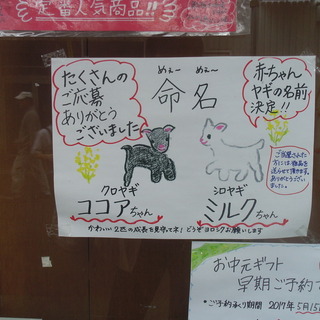 定番人気商品!!
たくさんの
ご応募
ありがとう
ございました
めぇー めぇ〜
命名
赤ちゃん
ヤギの名前
決定!!
ご当選された
方には商品を
送らせて頂きます。
ありがとうござい
ました。
クロヤギ
ココアちゃん
シロヤギ
ミルクちゃん
かわいい2匹の成長を見守ってネ!どうぞヨロシクお願いします
お中元ギフト
早期ご予約
・ご予約承り期間 2017年5月15